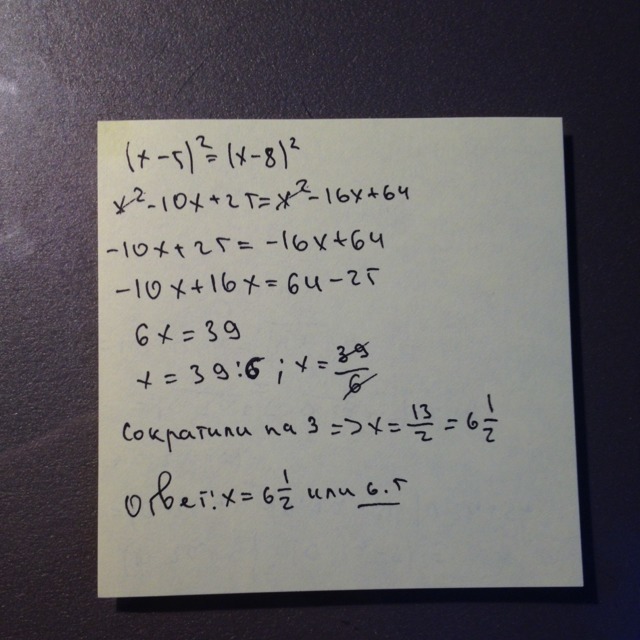 (x-5)²=(x-8)²
x²-10x+25=x²-16x+64
-10x+25=-16x+64
-10x+16x=64-25
6x=39
x=39:6; x=39/6
сократили на 3 => x=13/2=6 1/2
Ответ: x=6 1/2 или 6.5